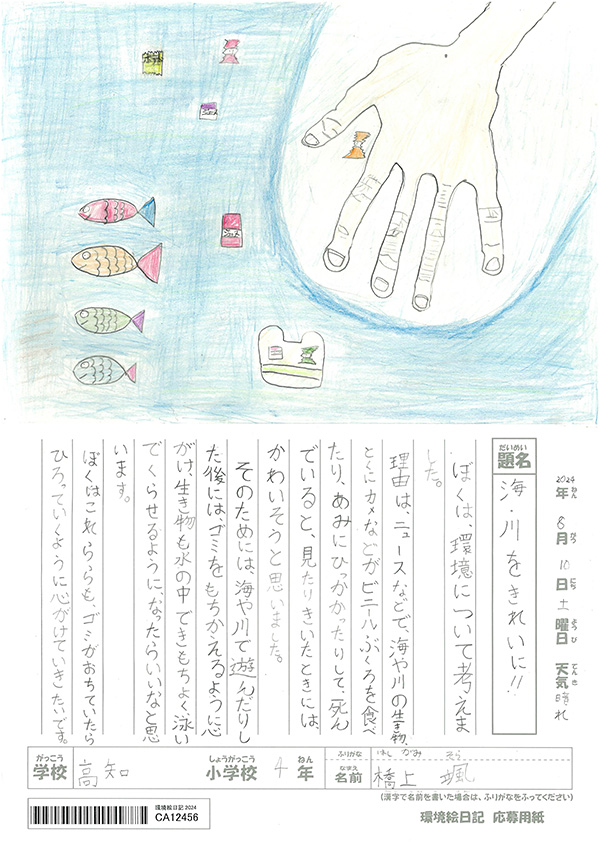 だいめい
題名
海・川をきれいに!!
2024年 8月 10日 土曜日 天気 晴れ
ねん がつ にち ようび てんき
ぼくは、環境について考えま
した。
理由は、ニュースなどで、海や川の生き物、
とくにカメなどがビニールぶくろを食べ
たり、あみにひっかかったりして、死ん
でいると、見たりきいたときには、
かわいそうと思いました。
そのためには、海や川で遊んだりし
た後には、ゴミをもちかえるように心
がけ、生き物も水の中できもちよく泳い
でくらせるようになったらいいなと思
います。
ぼくはこれかららも、ゴミがおちていたら
ひろっていくように心がけていきたいです。
がっこう しょうがっこう ねん
学校 高知 小学校 4年
ふりがな はしかみ そら
なまえ
名前 橋上 颯
(漢字で名前を書いた場合は、ふりがなをふってください)
環境絵日記 2024
CA12456
環境絵日記 応募用紙